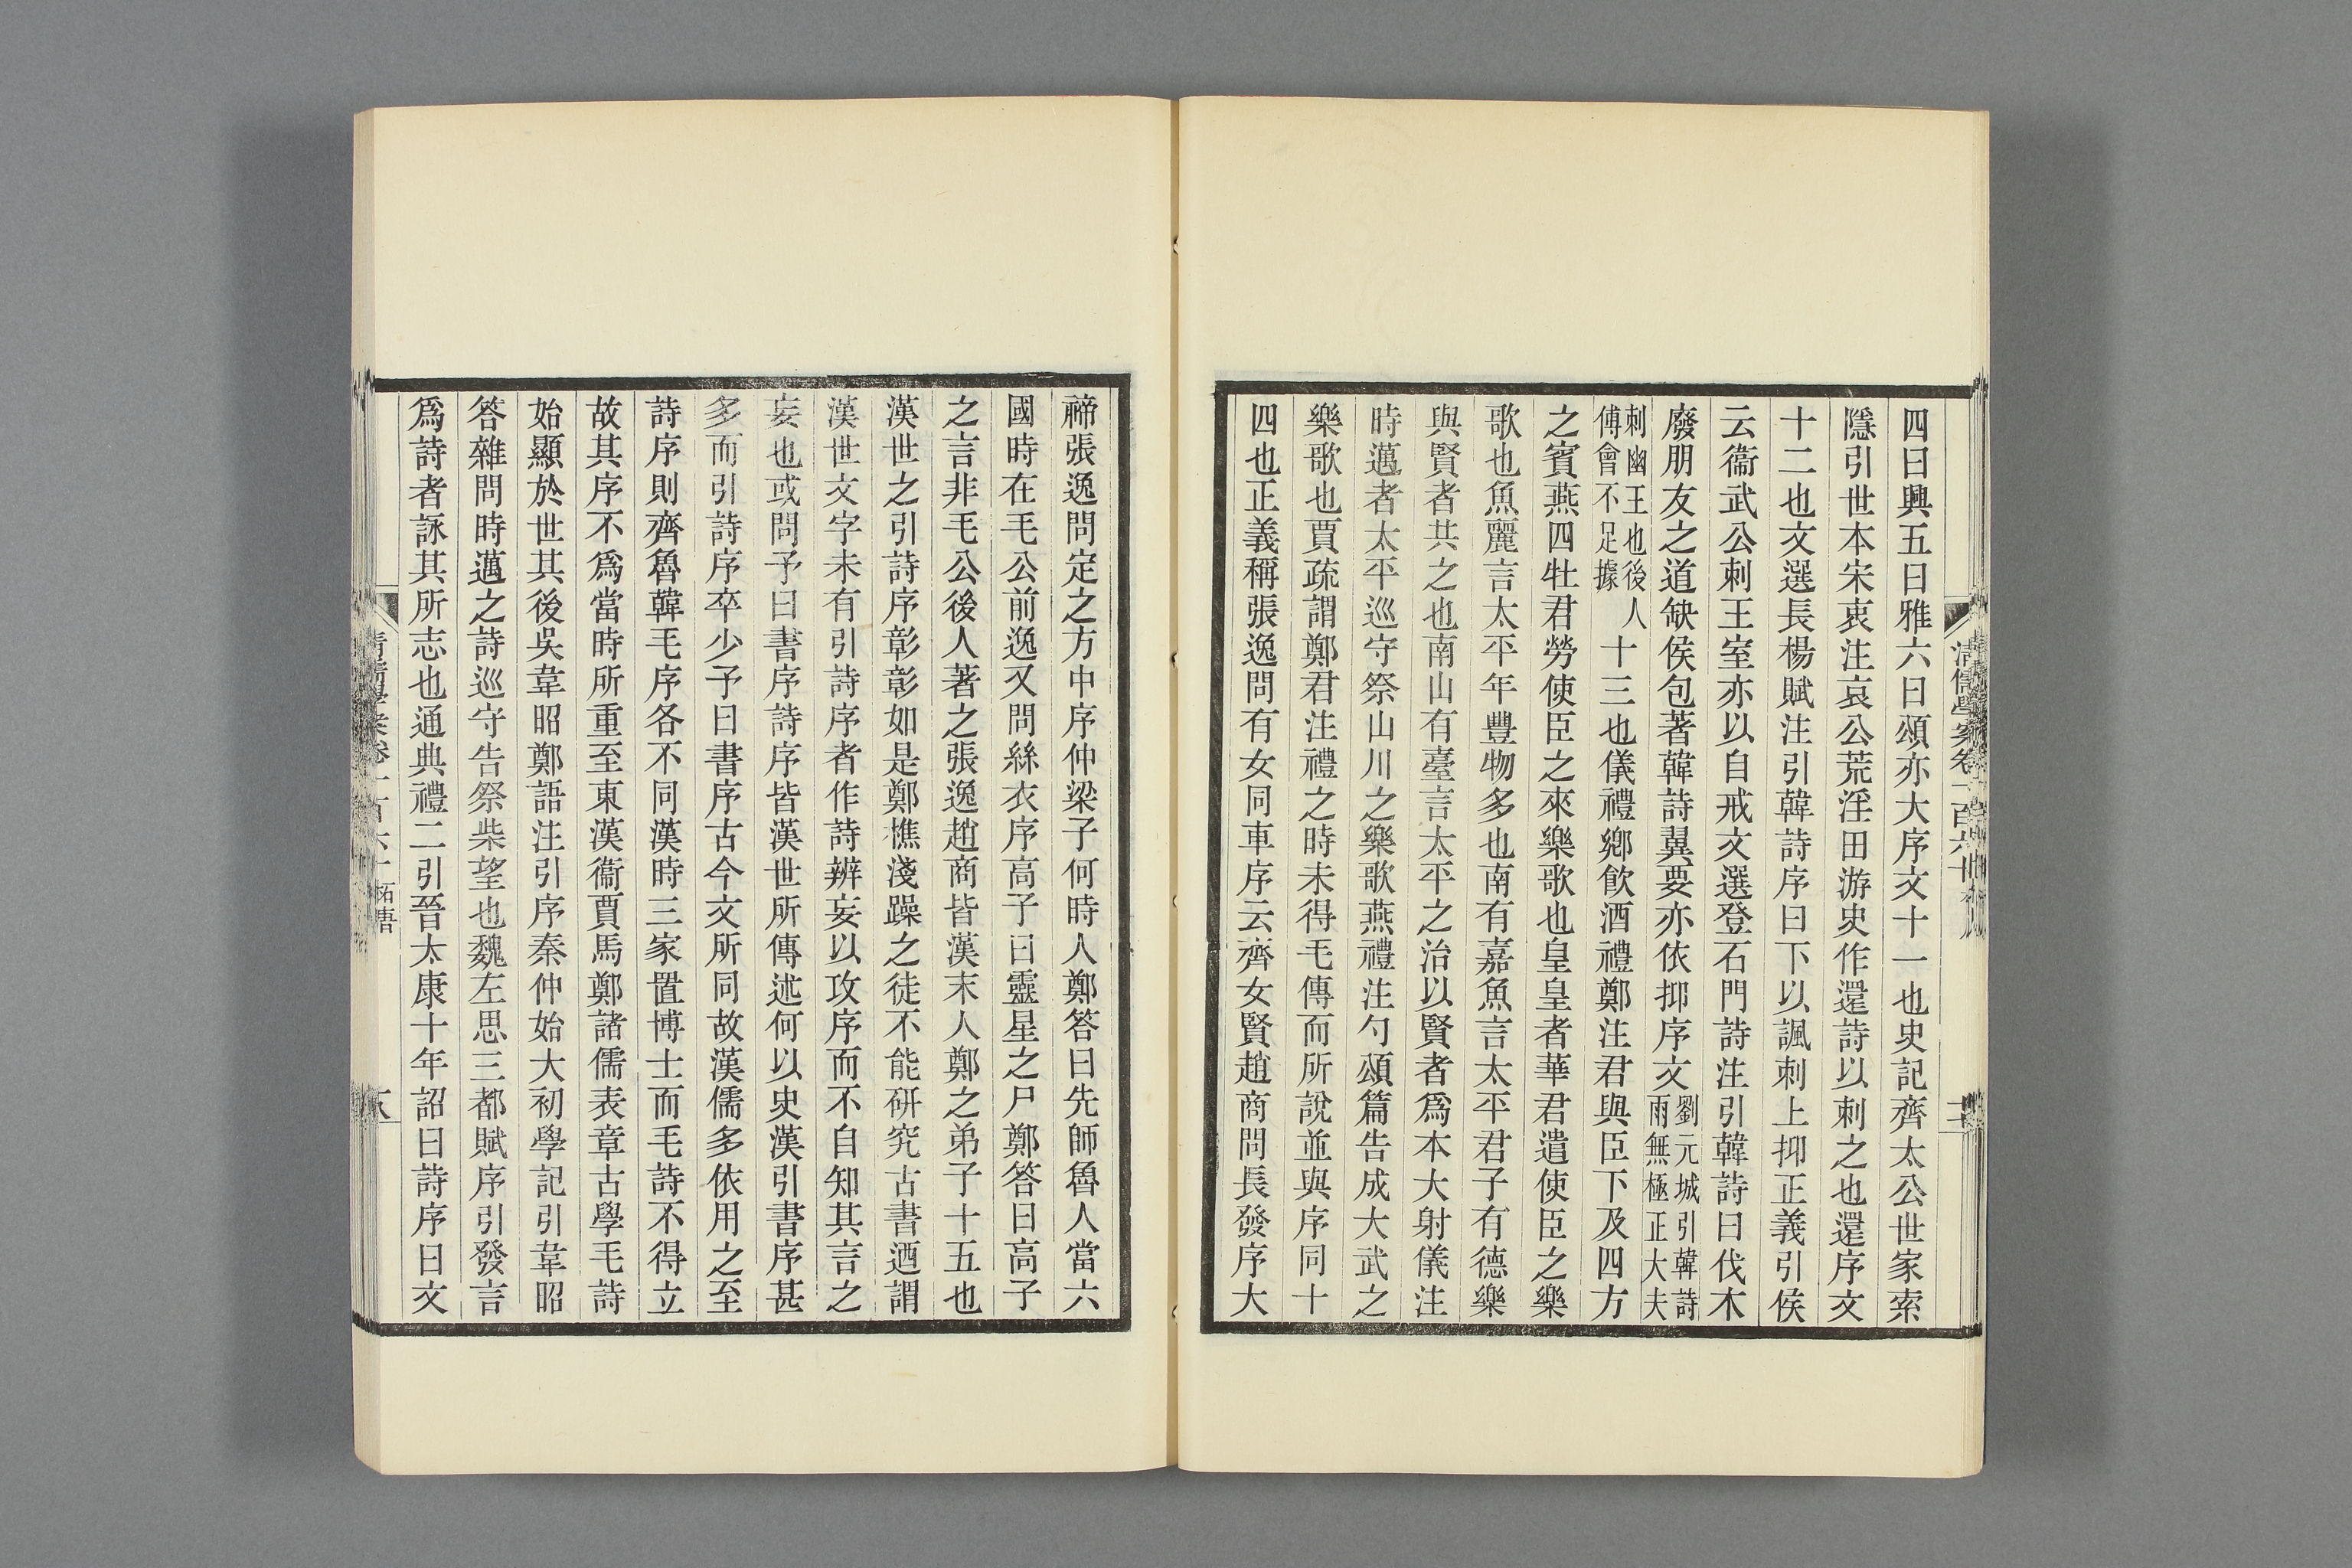 四曰興五曰雅六曰頌亦大序文十一也史記齊太公世家索
隱引世本宋衷注哀公荒淫田游史作還詩以刺之也還序文
十二也文選長楊賦注引韓詩序曰下以諷刺上抑正義引侯
云衞武公刺王室亦以自戒文選登石門詩注引韓詩曰伐木
廢朋友之道缺侯包著韓詩翼要亦依抑序文劉元城引韓詩雨無極正大夫
刺幽王也後人傅會不足據十三也儀禮鄉飮酒禮鄭注君與臣下及四方
之賓燕四牡君勞使臣之來樂歌也皇皇者華君遣使臣之樂
歌也魚麗言太平年豐物多也南有嘉魚言太平君子有德樂
與賢者共之也南山有臺言太平之治以賢者爲本大射儀注
時邁者太平巡守祭山川之樂歌燕禮注勺頌篇告成大武之
樂歌也賈疏謂鄭君注禮之時未得毛傳而所說並與序同十
四也正義稱張逸問有女同車序云齊女賢趙商問長發序大
禘張逸問定之方中序仲梁子何時人鄭答曰先師魯人當六
國時在毛公前逸又問絲衣序高子曰靈星之尸鄭答曰高子
之言非毛公後人著之張逸趙商皆漢末人鄭之弟子十五也
漢世之引詩序彰彰如是鄭樵淺躁之徒不能硏究古書迺謂
漢世文字未有引詩序者作詩辨妄以攻序而不自知其言之
妄也或問予曰書序詩序皆漢世所傳述何以史漢引書序甚
多而引詩序卒少予曰書序古今文所同故漢儒多依用之至
詩序則齊魯韓毛序各不同漢時三家置博士而毛詩不得立
故其序不爲當時所重至東漢衞賈馬鄭諸儒表章古學毛詩
始顯於世其後吳韋昭鄭語注引序秦仲始大初學記引韋昭
答雜問時邁之詩巡守告祭柴望也魏左思三都賦序引發言
爲詩者詠其所志也通典禮二引晉太康十年詔曰詩序曰文